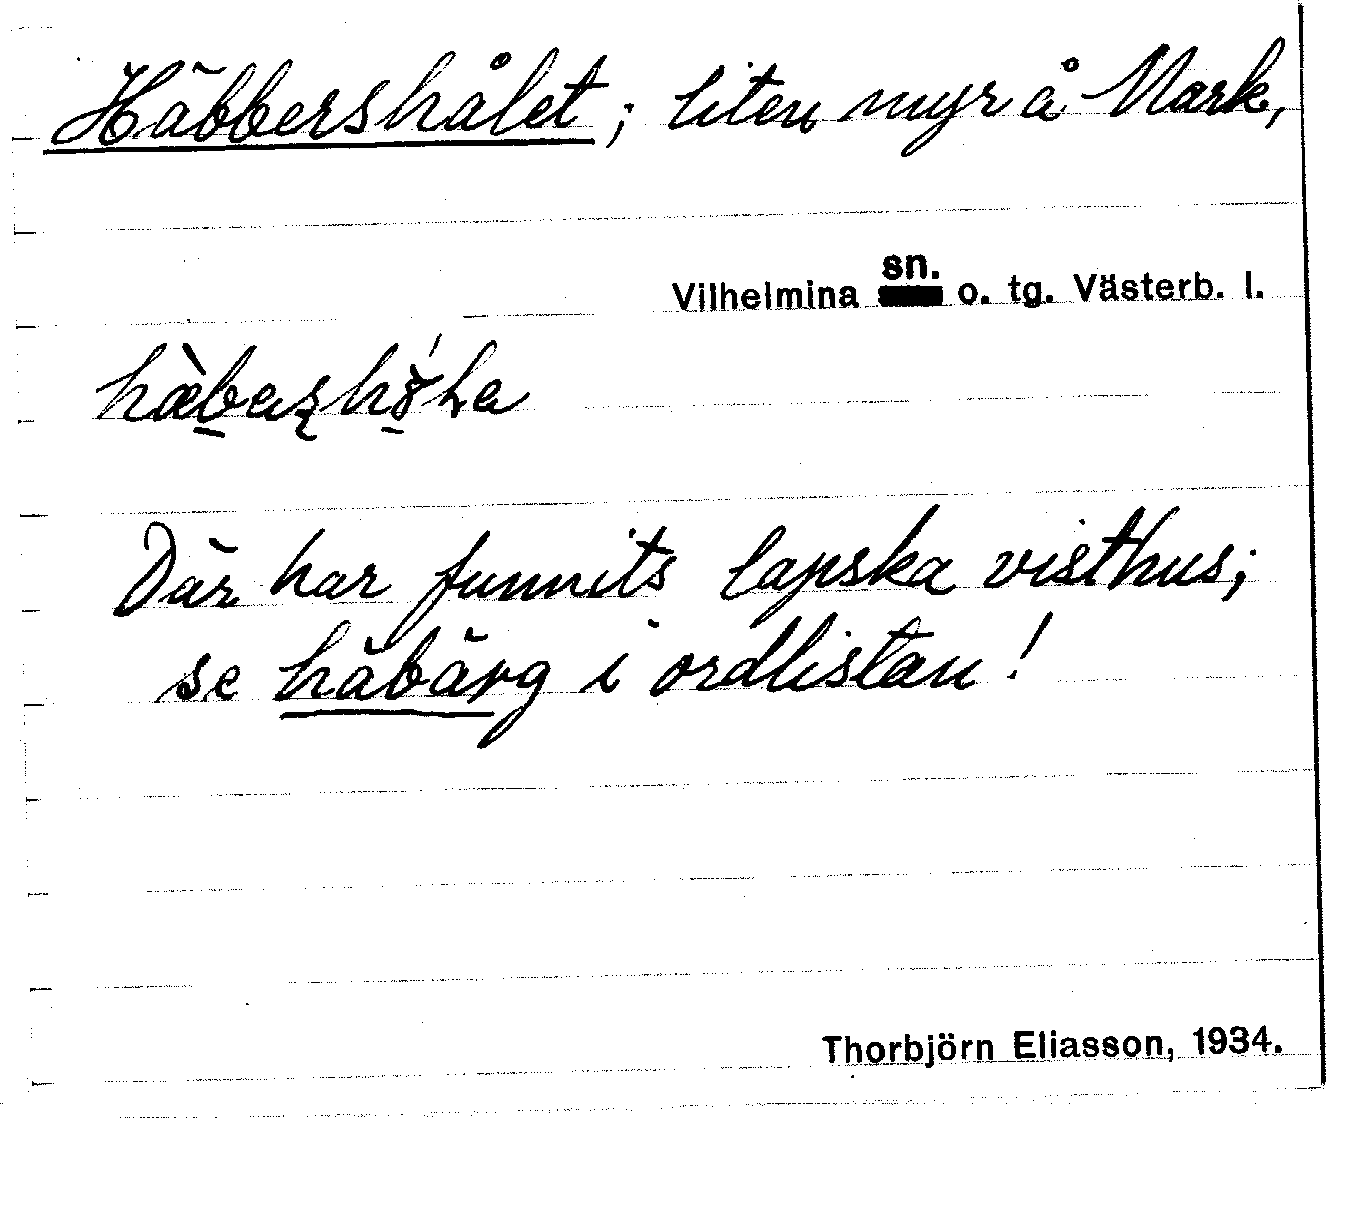 Häbbershålet; liten myr å Mark,
Vilhelmina sn. o. tg. Västerb. l.
Där har funnits lapska visthus;
se häbärg i ordlistan!
Thorbjörn Eliasson, 1934.